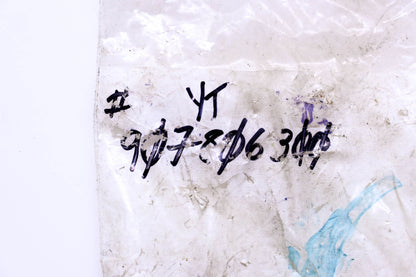 YT
# 907-8063